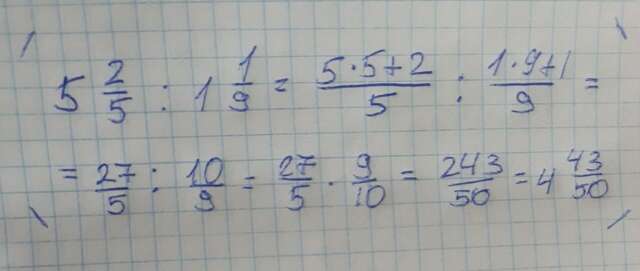 5 2/5 : 1 1/9 = (5·5+2)/5 : (1·9+1)/9 =
= 27/5 : 10/9 = 27/5 · 9/10 = 243/50 = 4 43/50